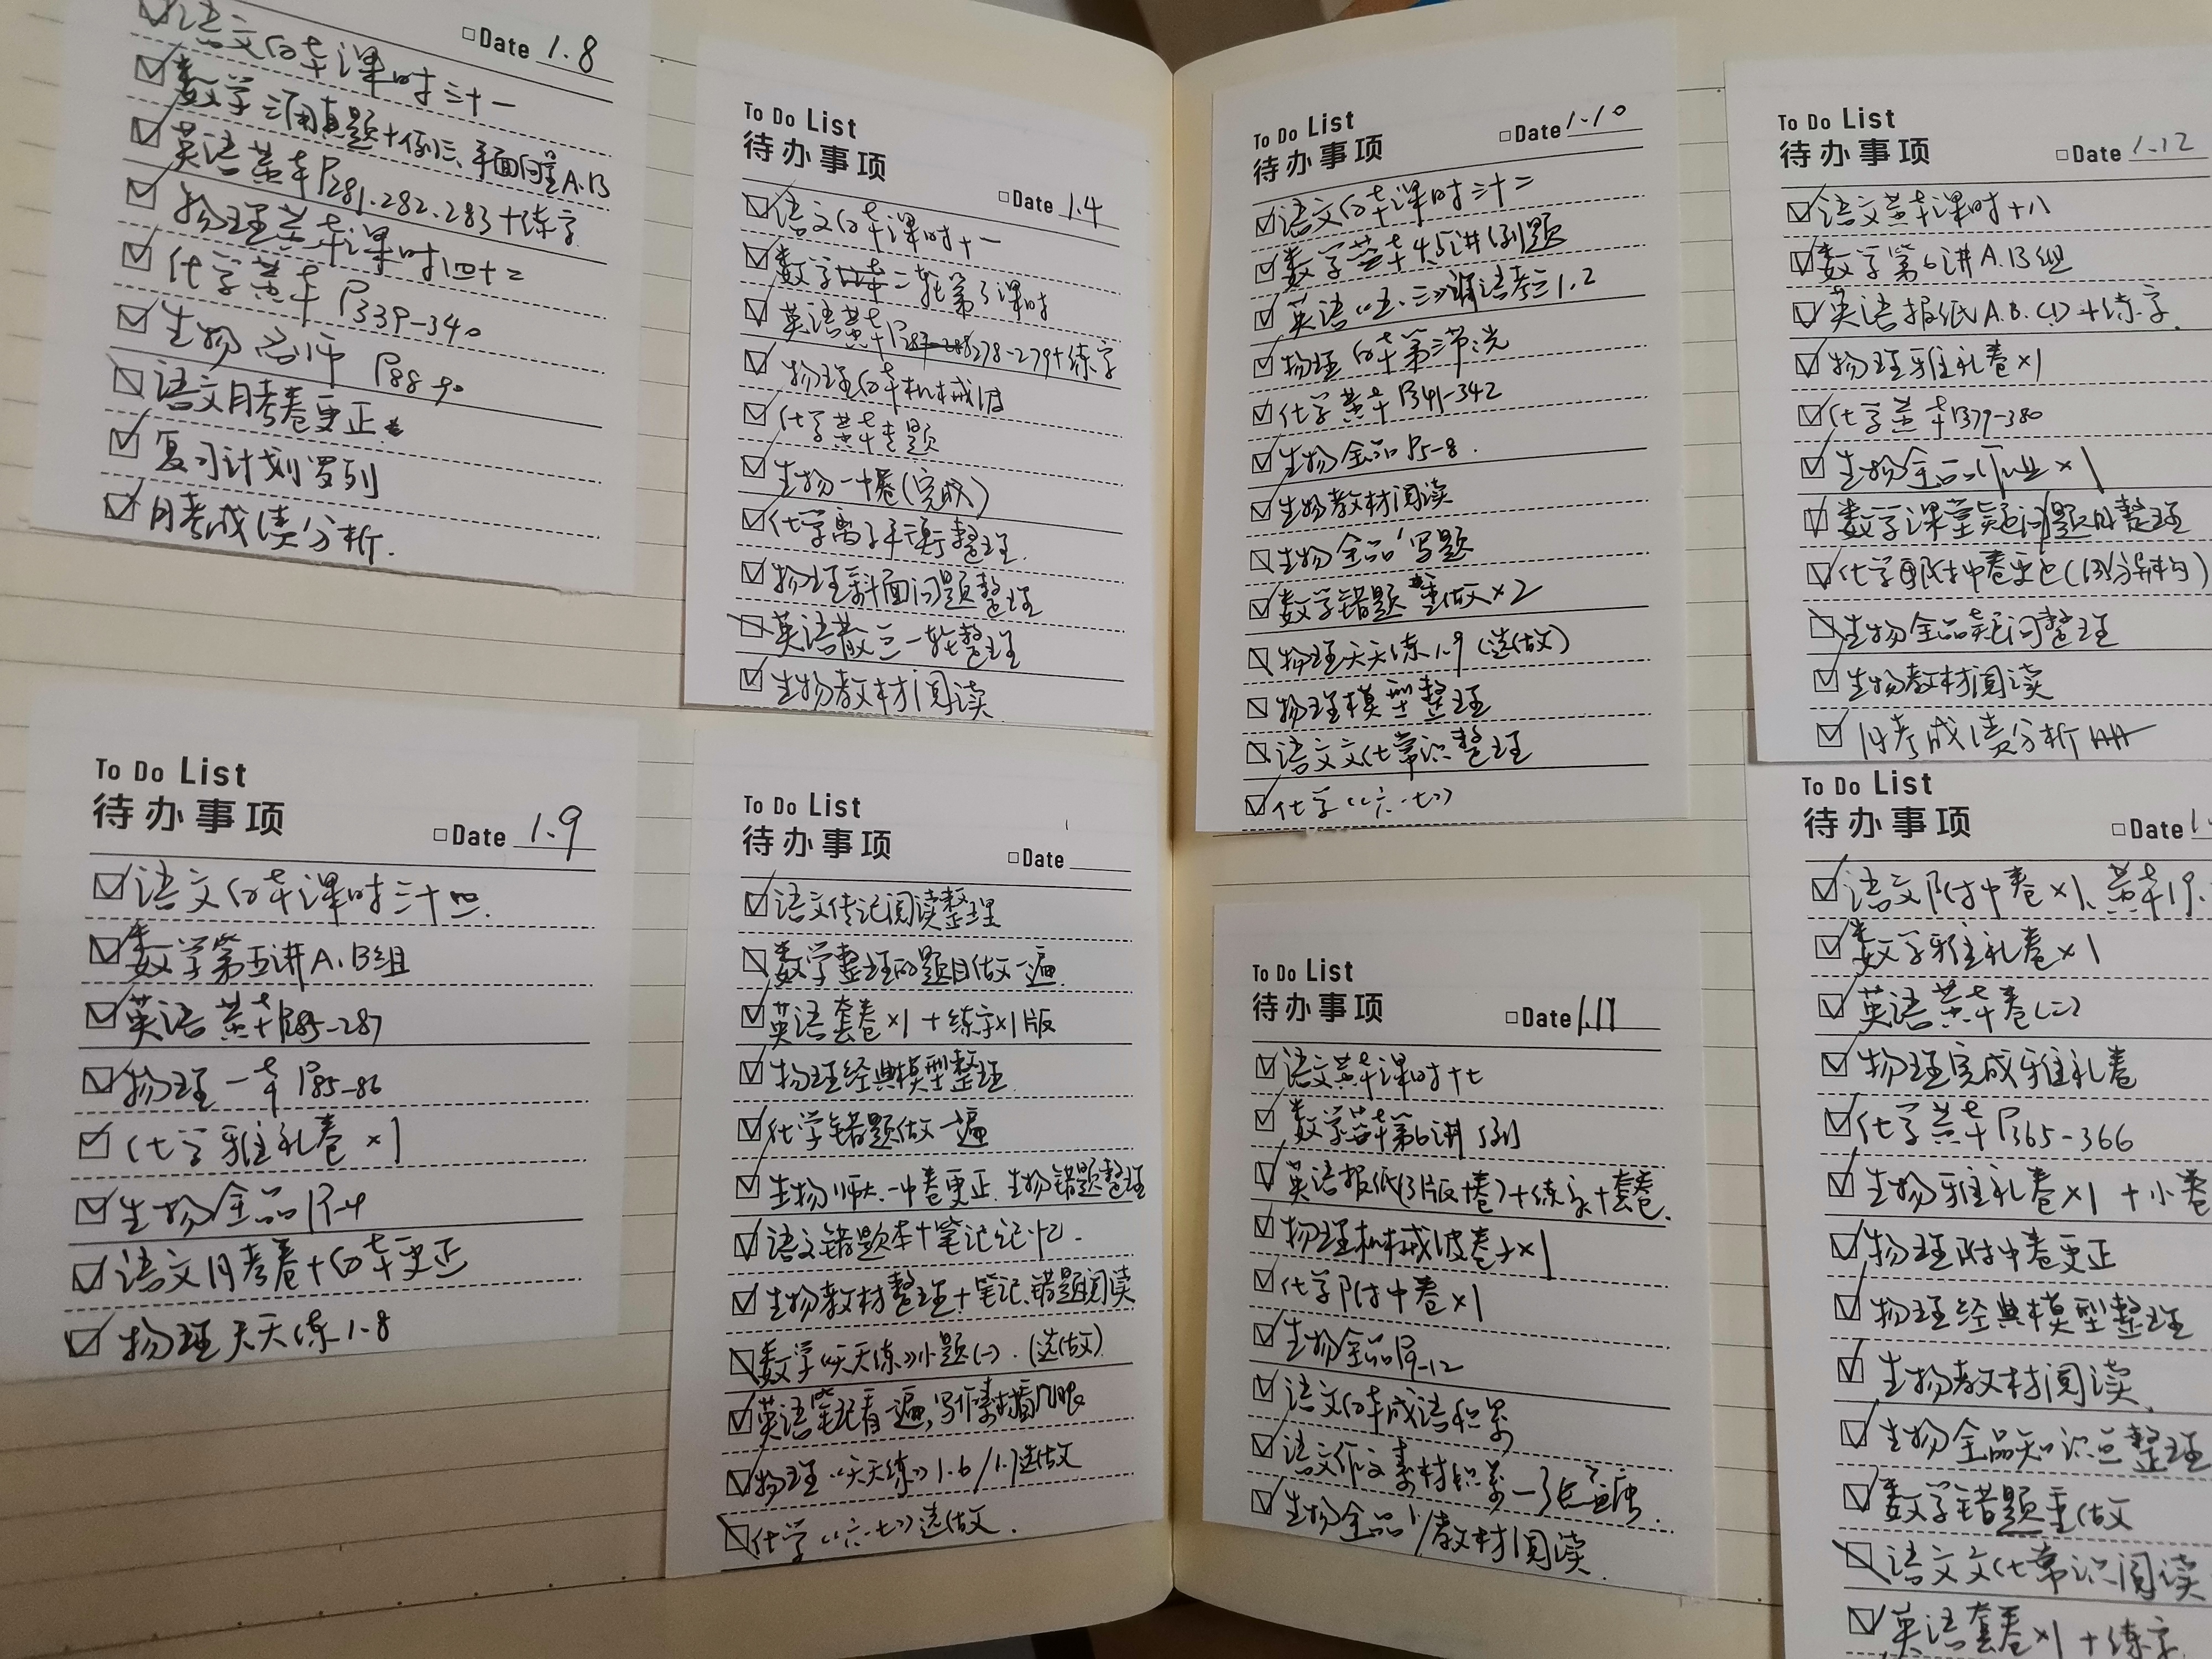 Date 1.8
语文白本课时三十一
数学三角真题+例三、平面向量A.B
英语黄本P281.282.283+练字
物理黄本课时四十二
化学黄本P339-340
生物 名师 P88-90
语文月考卷更正
复习计划罗列
月考成绩分析.
To Do List
待办事项
Date 1.9
语文白本课时三十四.
数学第五讲A.B组
英语黄本P285-287
物理一本P85-86
化学雅礼卷×1
生物全品P1-4
语文月考卷+白本更正
物理天天练1.8
To Do List
待办事项
Date 1.4
语文白本课时十一
数学二轮第3课时
英语黄本P278-279+练字
物理白本机械波
化学黄本专题
生物一中卷(完成)
化学离子平衡整理.
物理斜面问题整理
英语散三一轮整理
生物教材阅读
To Do List
待办事项
Date
语文传记阅读整理
数学整理的题目做一遍
英语套卷×1+练字×1版
物理经典模型整理
化学错题做一遍
生物师大.一中卷更正.生物错题整理
语文错题本+笔记记忆.
生物教材整理+笔记.错题阅读
数学《天天练》小题(一).(选做)
英语笔记看一遍,写作素材看几眼
物理《天天练》1.6/1.7选做
化学《六·七》选做.
To Do List
待办事项
Date 1.10
语文白本课时三十二
数学黄本4.5讲例题
英语《五·三》 1.2
物理白本第三节光
化学黄本P341-342
生物全品P5-8.
生物教材阅读
生物全品写题
数学错题重做×2
物理天天练1.9(选做)
物理模型整理
语文文化常识整理
化学《六·七》
To Do List
待办事项
Date 1.11
语文黄本课时十七
数学黄本第6讲 例
英语报纸(3版+卷)+练字+套卷.
物理机械波卷子×1
化学附中卷×1
生物全品P9-12
语文白本成语积累
语文作文素材积累
生物全品/教材阅读.
To Do List
待办事项
Date 1.12
语文黄本课时十八
数学第6讲A.B组
英语报纸A.B.C.D+练字.
物理雅礼卷×1
化学黄本P379-380
生物全品作业×1
数学课堂疑问题目整理
化学附中卷更正(同分异构)
生物全品疑问整理
生物教材阅读
月考成绩分析
To Do List
待办事项
Date 1.
语文附中卷×1、黄本19.
数学雅礼卷×1
英语黄本卷(二)
物理完成雅礼卷
化学黄本P365-366
生物雅礼卷×1+小卷
物理附中卷更正
物理经典模型整理
生物教材阅读.
生物全品知识点整理
数学错题重做
语文文化常识阅读
英语套卷×1+练字